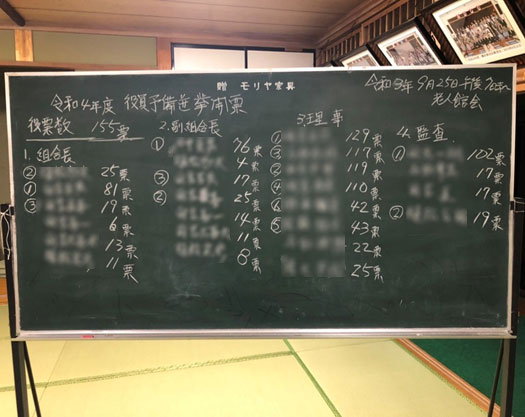 贈 モリヤ家具
令和3年9月25日午後7時
老人館会
令和4年度 役員予備選挙開票
投票数 155票
1. 組合長
② 25票
① 81票
③ 19票
6票
13票
11票
2. 副組合長
① 76票
4票
③ 17票
② 25票
14票
11票
8票
3. 理事
① 129票
③ 117票
② 119票
④ 110票
⑥ 42票
⑤ 43票
22票
25票
4. 監査
① 102票
17票
17票
② 19票